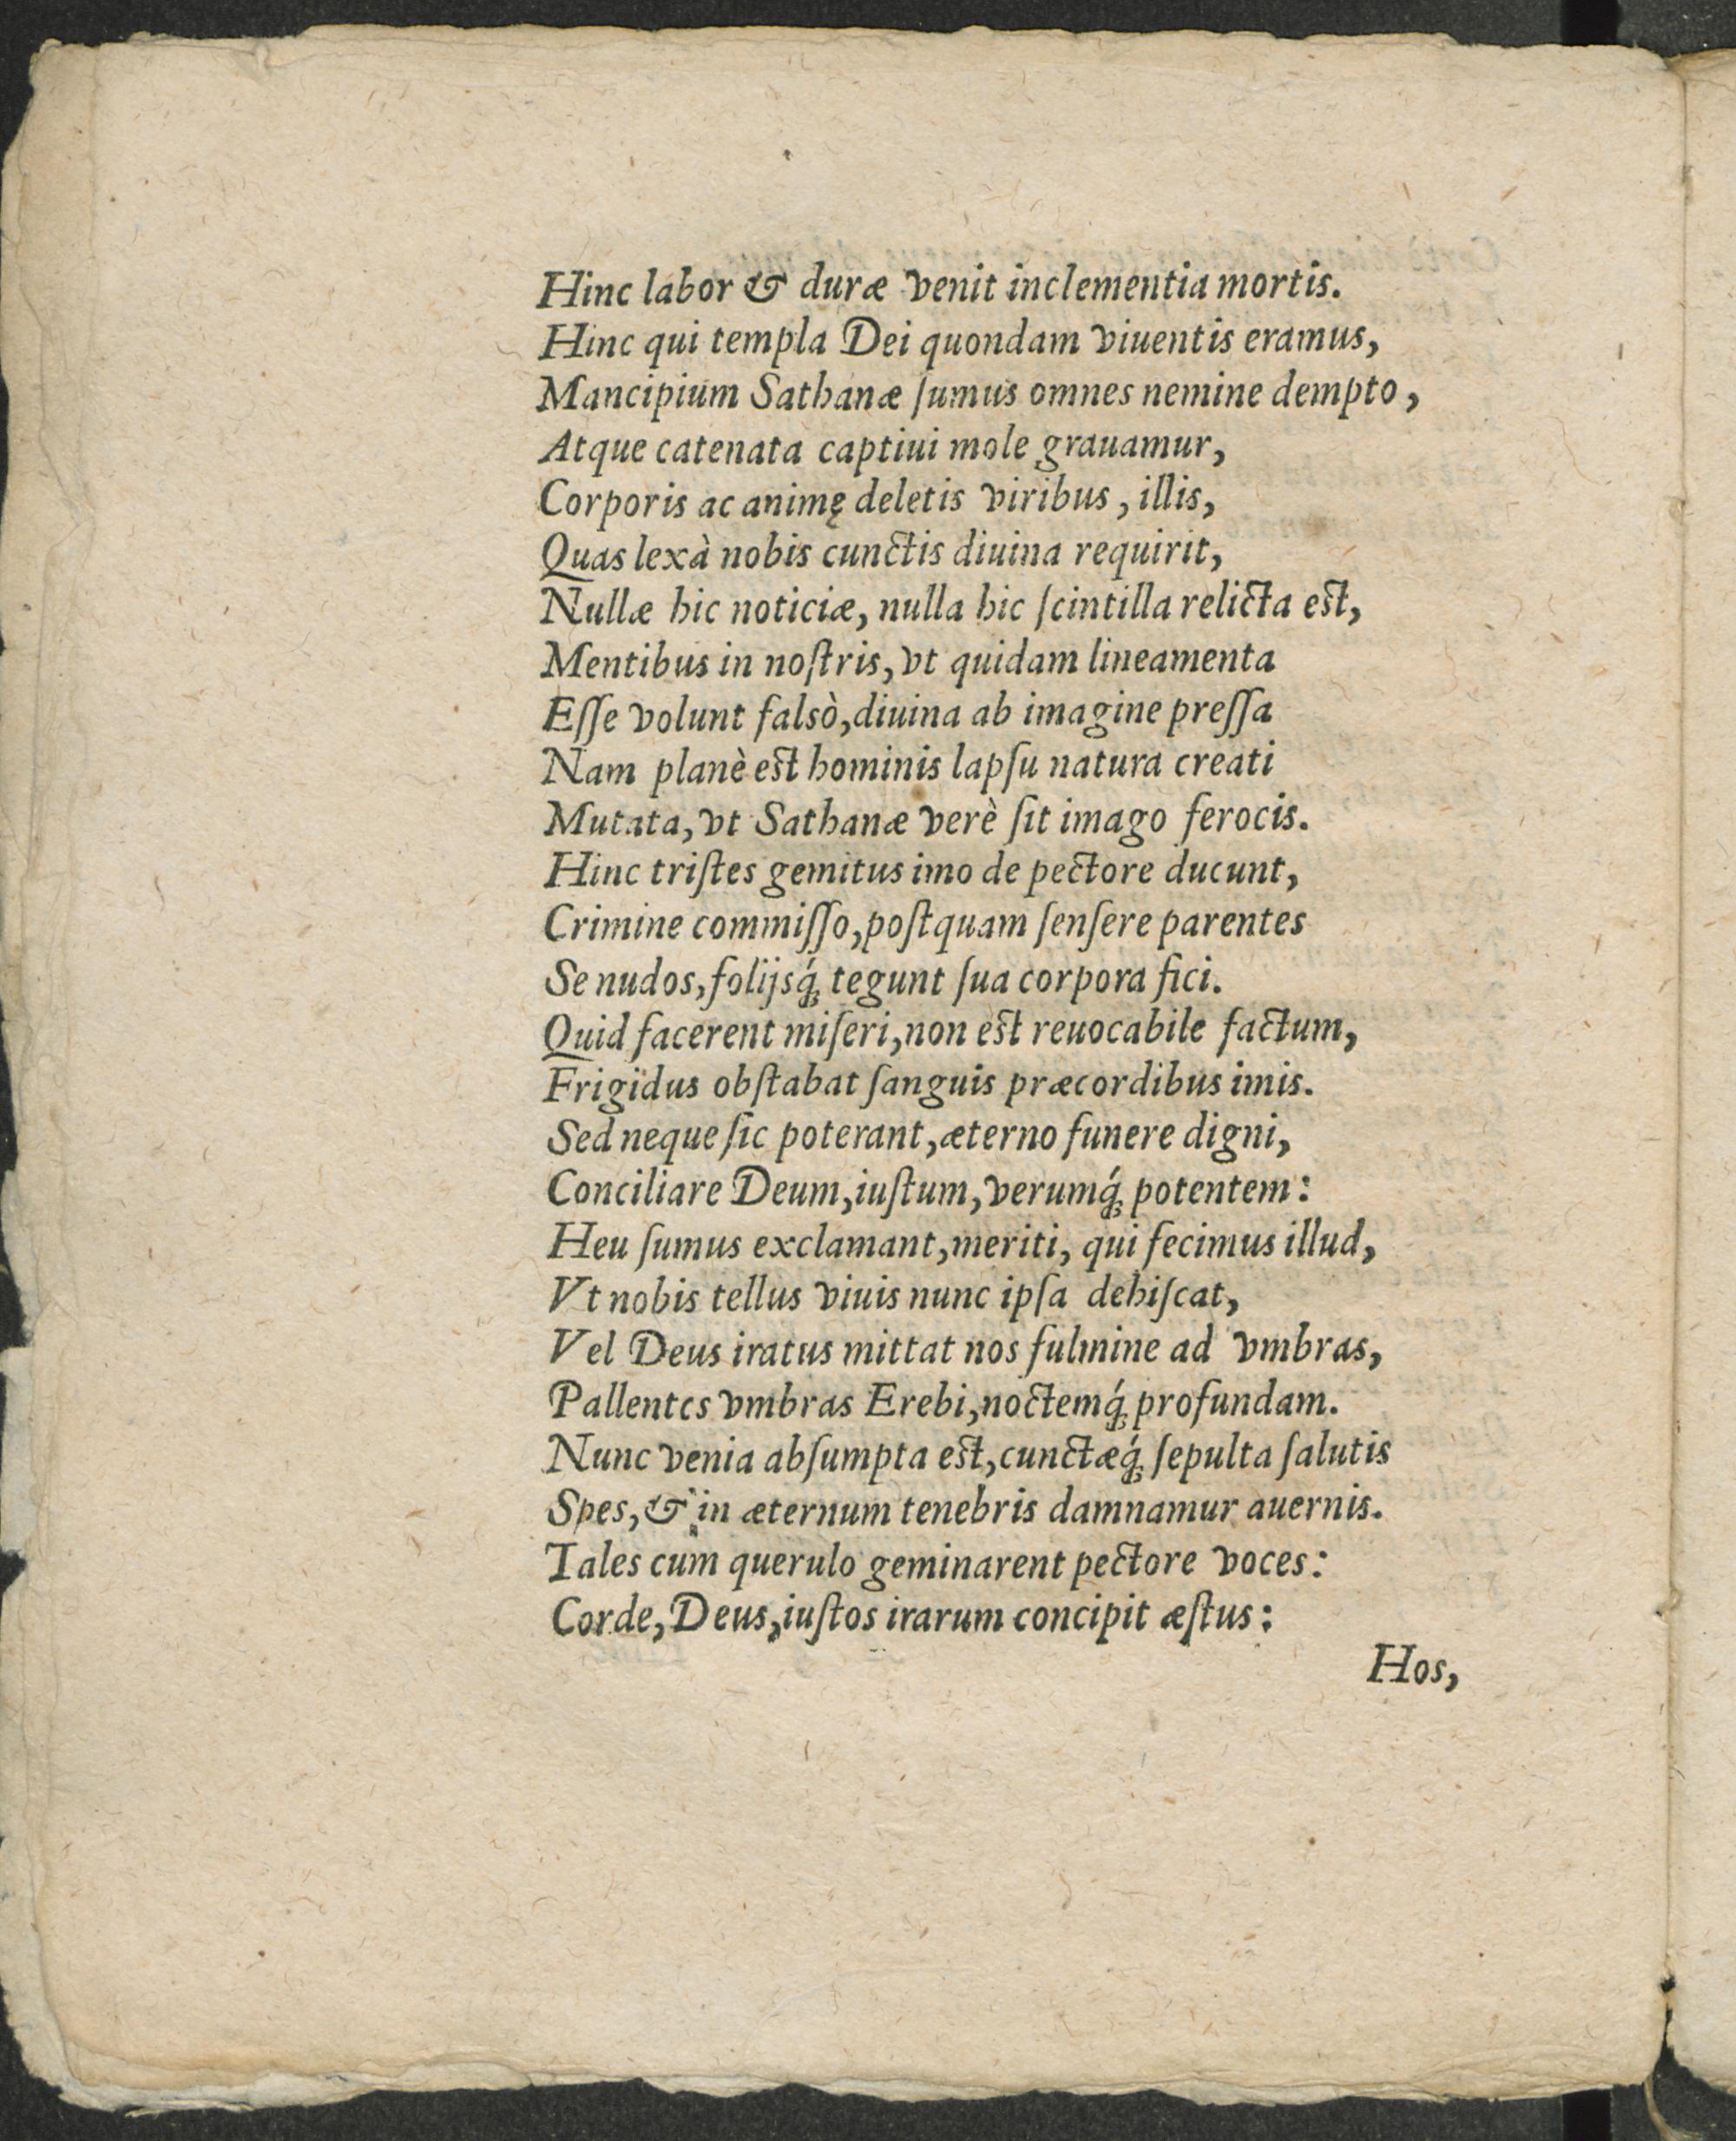 Hinc labor & duræ venit inclementia mortis.
Hinc qui templa Dei quondam viuentis eramus,
Mancipium Sathanæ ſumus omnes nemine dempto,
Atque catenata captiui mole grauamur,
Corporis ac animę deletis viribus, illis,
Quas lexà nobis cunctis diuina requirit,
Nullæ hic noticiæ, nulla hic ſcintilla relicta est,
Mentibus in noſtris, vt quidam lineamenta
Eſſe volunt falsò, diuina ab imagine preſſa
Nam planè est hominis lapſu natura creati
Mutata, vt Sathanæ verè ſit imago ferocis.
Hinc triſtes gemitus imo de pectore ducunt,
Crimine commiſſo, poſtquam ſenſere parentes
Se nudos, folijsq́ꝫ tegunt ſua corpora fici.
Quid facerent miſeri, non est reuocabile factum,
Frigidus obſtabat ſanguis præcordibus imis.
Sed neque ſic poterant, æterno funere digni,
Conciliare Deum, iuſtum, verumq́ꝫ potentem:
Heu ſumus exclamant, meriti, qui fecimus illud,
Vt nobis tellus viuis nunc ipſa dehiſcat,
Vel Deus iratus mittat nos fulmine ad vmbras,
Pallentes vmbras Erebi, noctemq́ꝫ profundam.
Nunc venia abſumpta est, cunctæq́ꝫ ſepulta ſalutis
Spes, & in æternum tenebris damnamur auernis.
Tales cum querulo geminarent pectore voces:
Corde, Deus, iuſtos irarum concipit æſtus:
Hos,